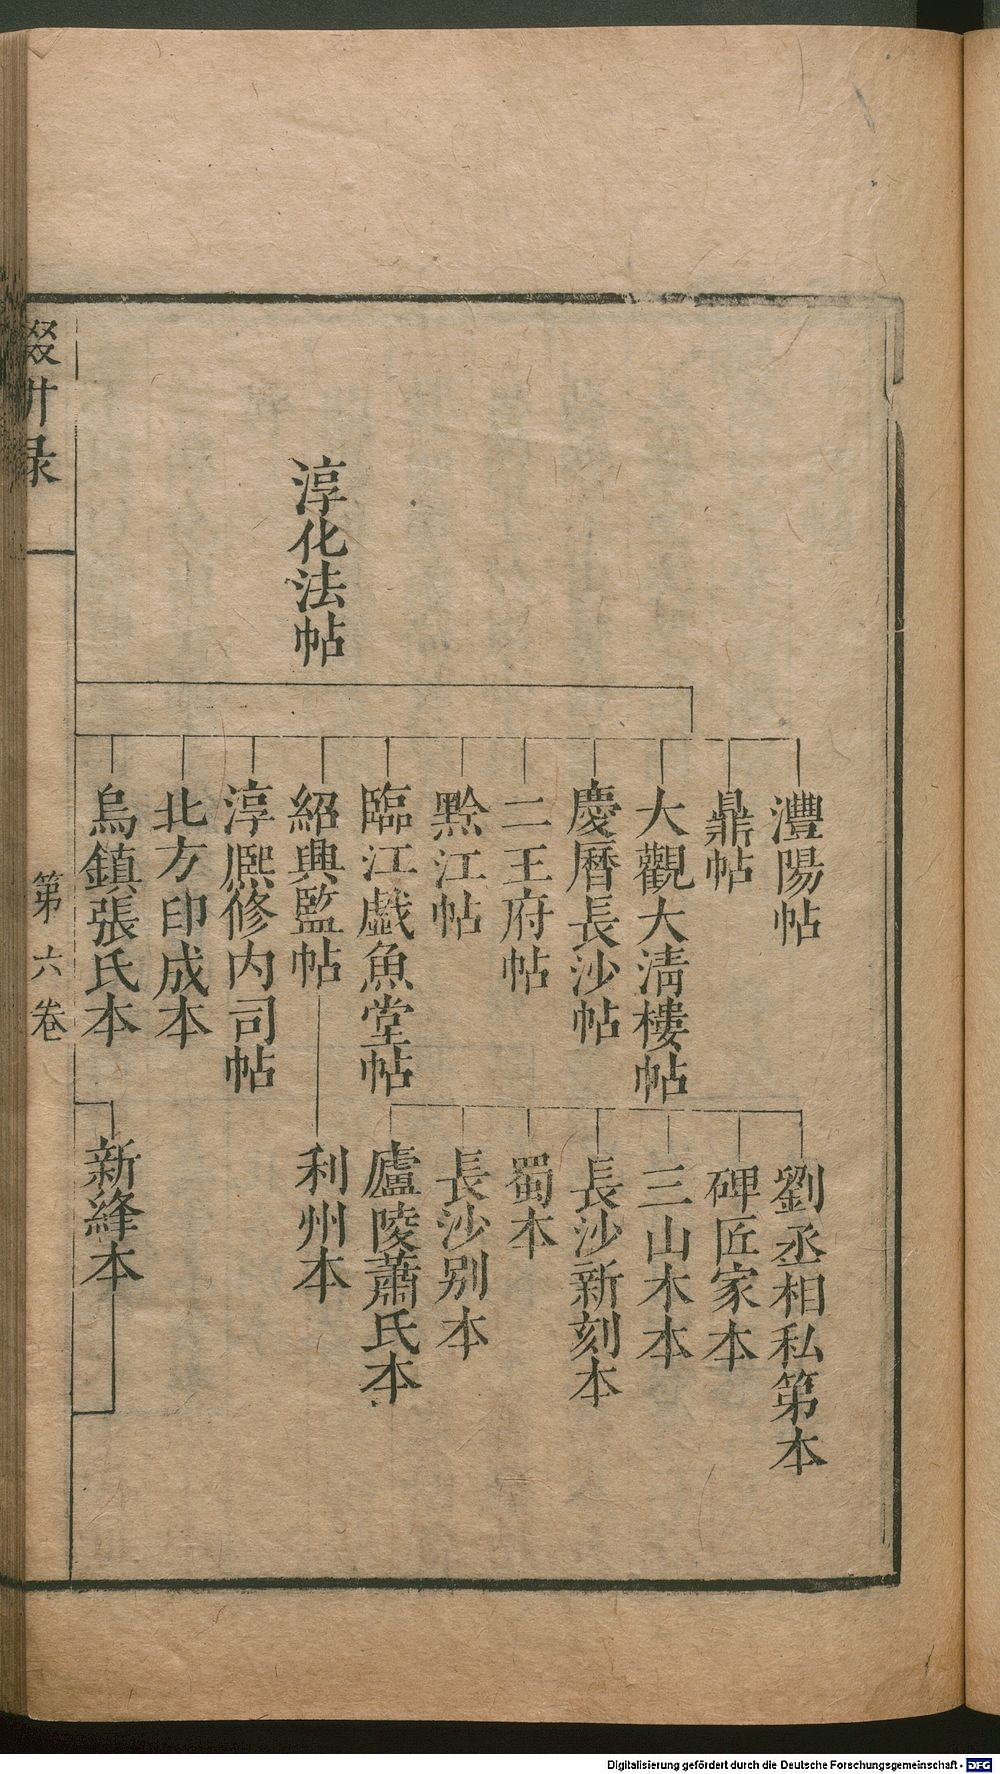 淳化法帖
灃陽帖
鼎帖
大觀大清樓帖
慶曆長沙帖
二王府帖
黔江帖
臨江戲魚堂帖
紹興監帖
淳熈修内司帖
北方印成本
烏鎮張氏本
劉丞相私第本
碑匠家本
三山木本
長沙新刻本
蜀本
長沙别本
廬陵蕭氏本
利州本
新絳本
輟畊录
第六卷
Digitalisierung gefördert durch die Deutsche Forschungsgemeinschaft - DFG